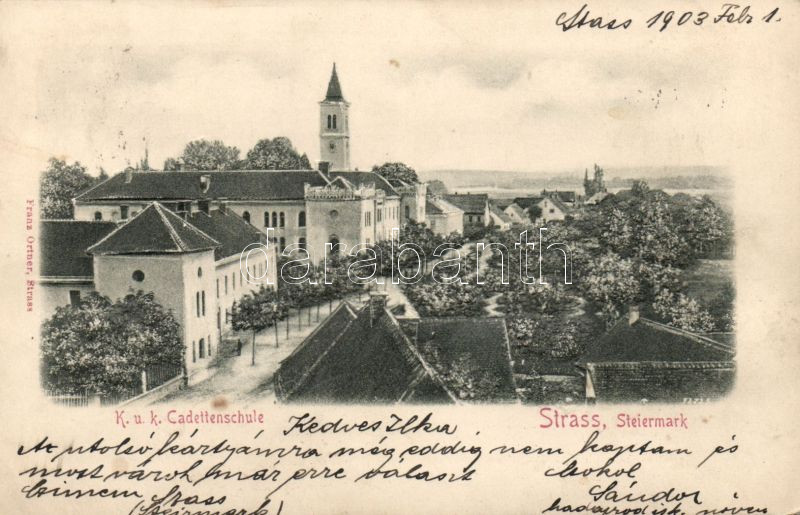 Stass 1903 Febr 1.
Franz Ortner, Strass
darabanth
K. u. k. Cadettenschule
Strass, Steiermark
Kedves Ilka
Az utolsó kártyámra még eddig nem kaptam és
most várok már erre választ
Czimem Stass
(Steiermark)
Csokol
Sándor
hadaprodisk. növen